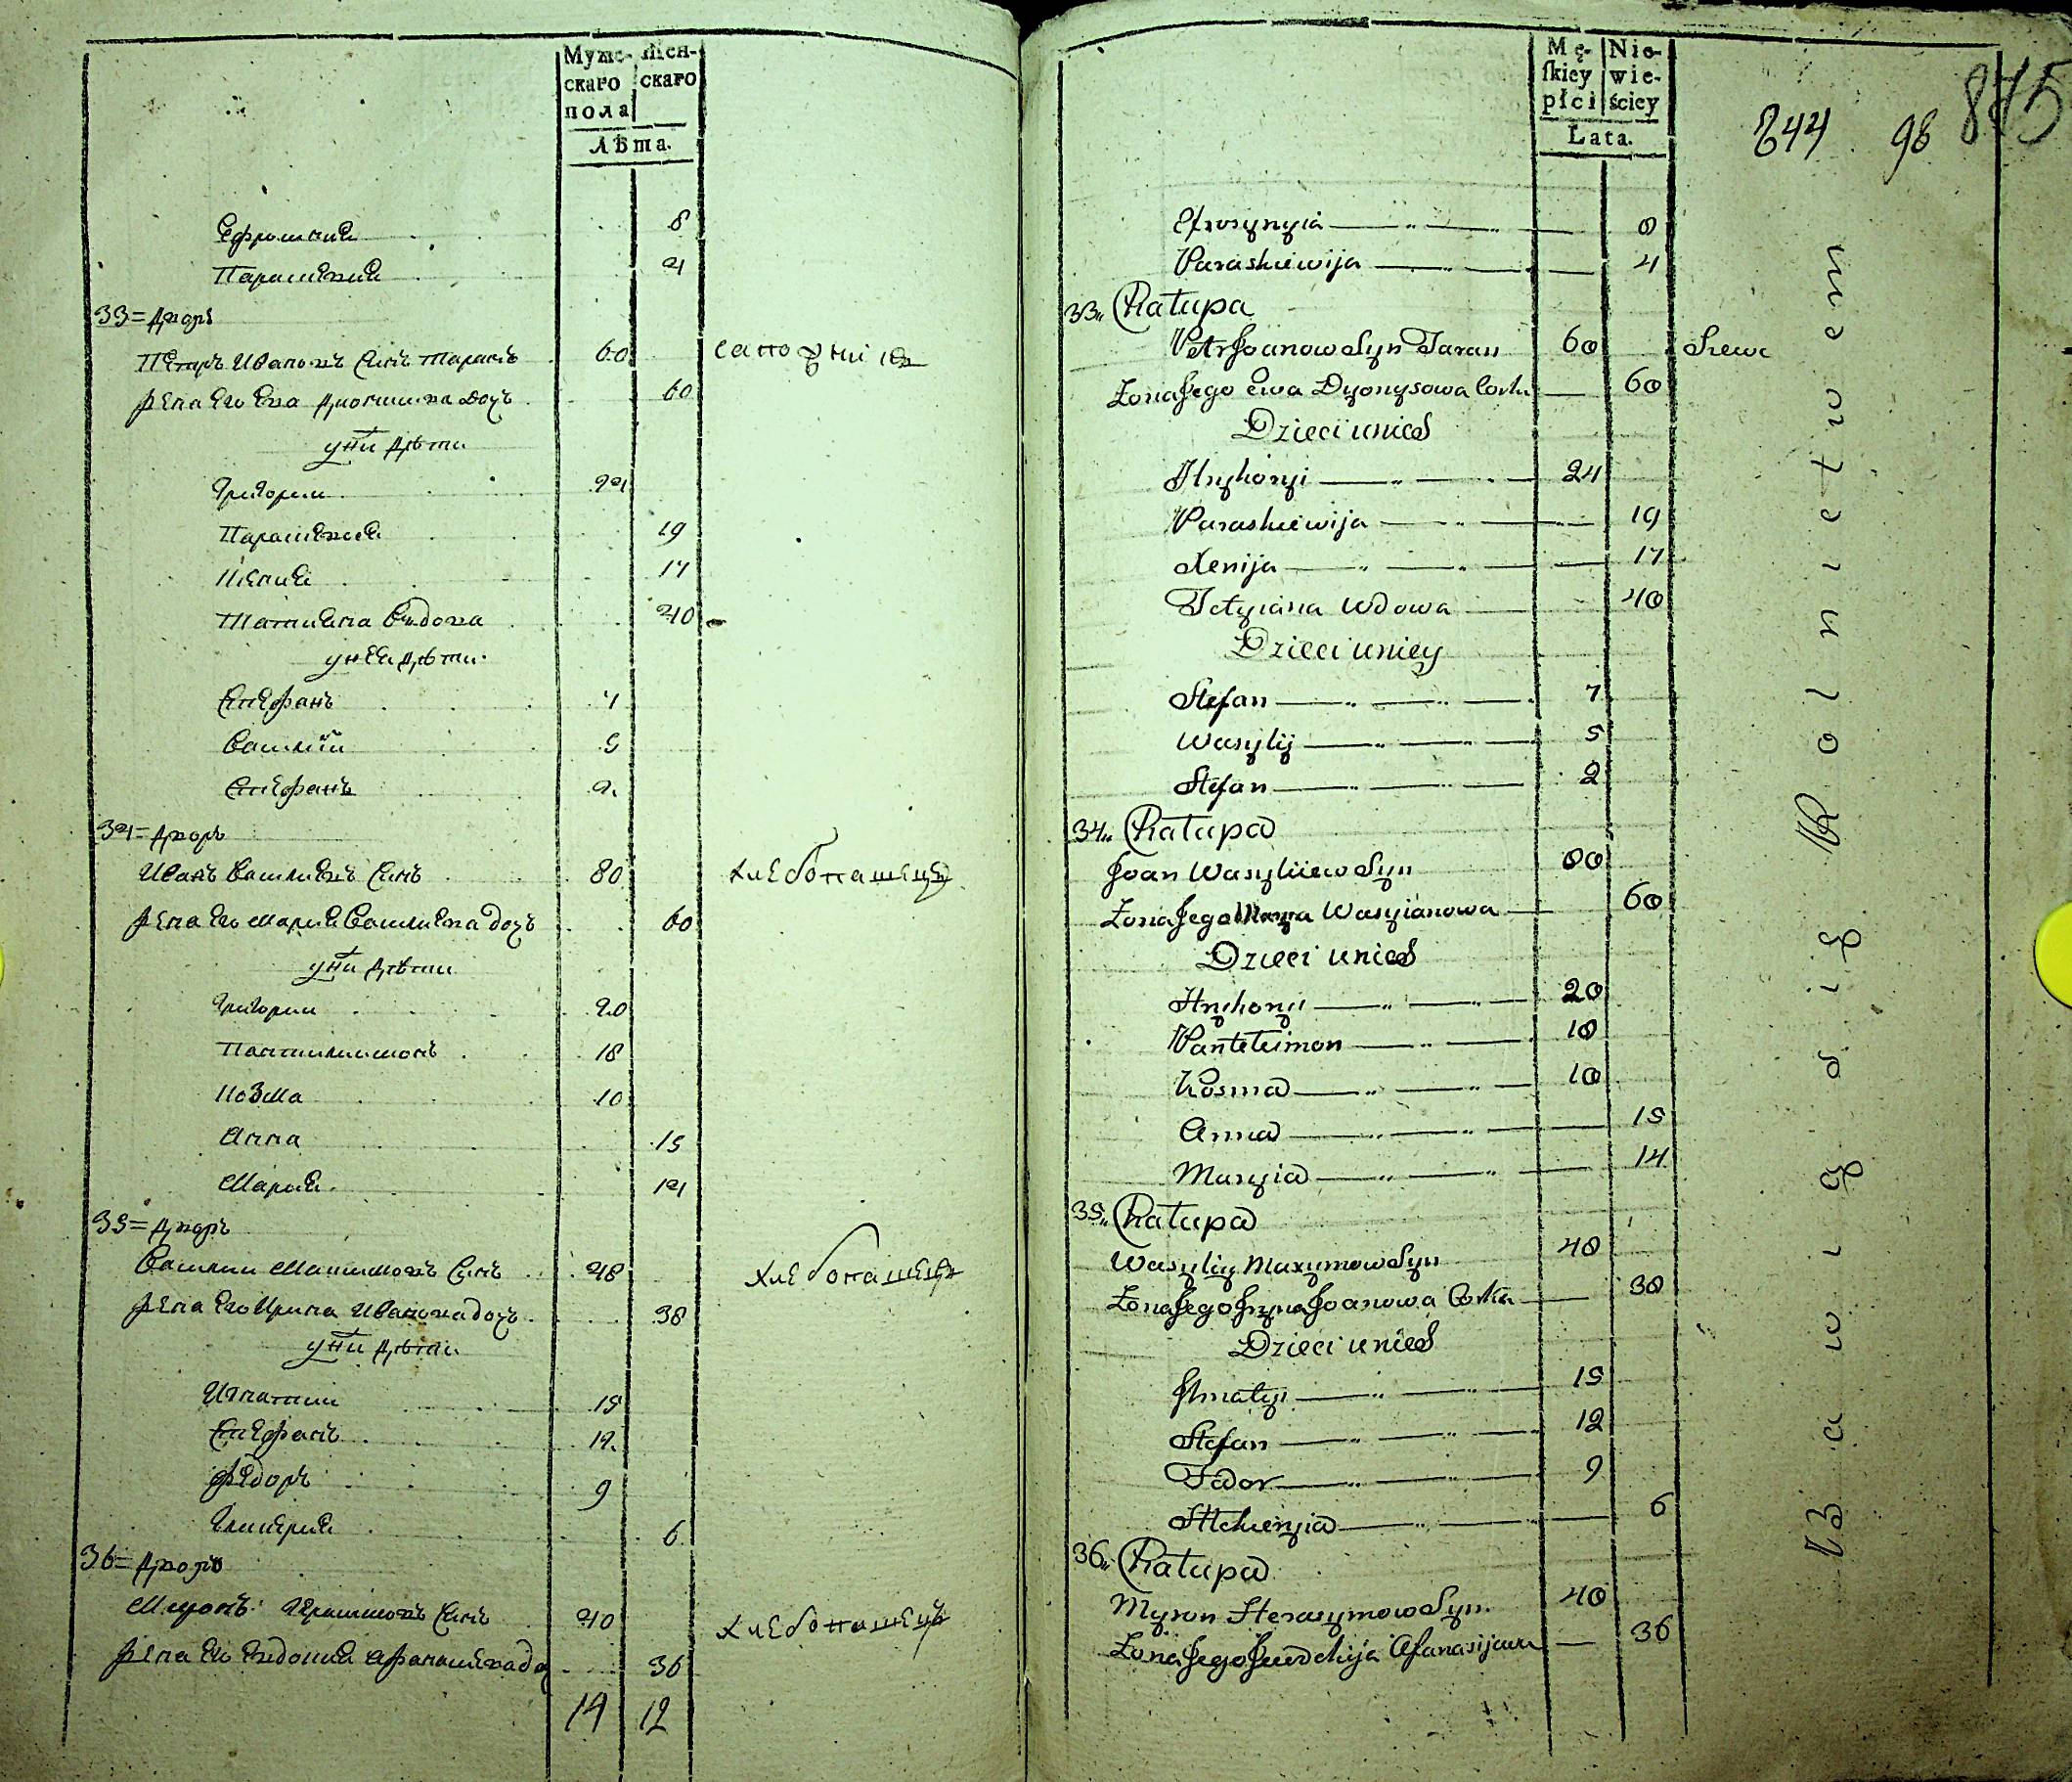 Мужескаго пола
Женскаго
Лѣта.
Ефросиния 8
Параскевия 4
33 = Дворъ
Петръ Ивановъ Синъ Таранъ 60 сапожникъ
Жена Его Ева Дионисиева Дочъ 60
у них Дѣти
Григории 24
Параскевия 19
Ксения 17
Татиана Вдова 40
у нея Дѣти
Стефанъ 7
Василий 5
Стефанъ 2
34 = Дворъ
Иванъ Василиевъ Синъ 80 хлебопашецъ
Жена Его Мария Василиева дочъ 60
у них Дѣти
Григории 20
Пантилиимонъ 18
Козма 10
Анна 15
Мария 14
35 = Дворъ
Василии Макимовъ Синъ 48 хлебопашецъ
Жена Его Ирина Иванова дочъ 38
у них Дѣти
Игнатии 15
Стефанъ 12
Федоръ 9
Гликерия 6
36 = Дворъ
Миронъ Герасимовъ Синъ 40 хлебопашецъ
Жена Его Евдокия Афанасиева до 36
14 12
Męſkiey płci
Niewieściey
Lata.
844 98 875
Efrosynyia 8
Paraskiewija 4
33„ Chałupa
Petr Joanow Syn Taran 60 Szewc
Zona Jego Ewa Dyonysowa Corka 60
Dzieci unich
Hryhoryi 24
Paraskiewija 19
Xenija 17
Tetyiana Wdowa 40
Dzieci uniey
Stefan 7
Wasylij 5
Stefan 2
34„ Chałupa
Joan Wasyliiew Syn 80
Zona Jego Marya Wasyianowa 60
Dzieci unich
Hryhoryi 20
Panteleimon 18
Kosma 10
Anna 15
Maryia 14
35„ Chałupa
Wasyliy Maxymow Syn 48
Zona Jego Jryna Joanowa Corka 38
Dzieci unich
Jhnatyi 15
Stefan 12
Fedor 9
Hlikieryia 6
36„ Chałupa
Myron Herasymow Syn 40
Zona Jego Jewdokija Afanasijewa 36
Bawią się Rolnictwem